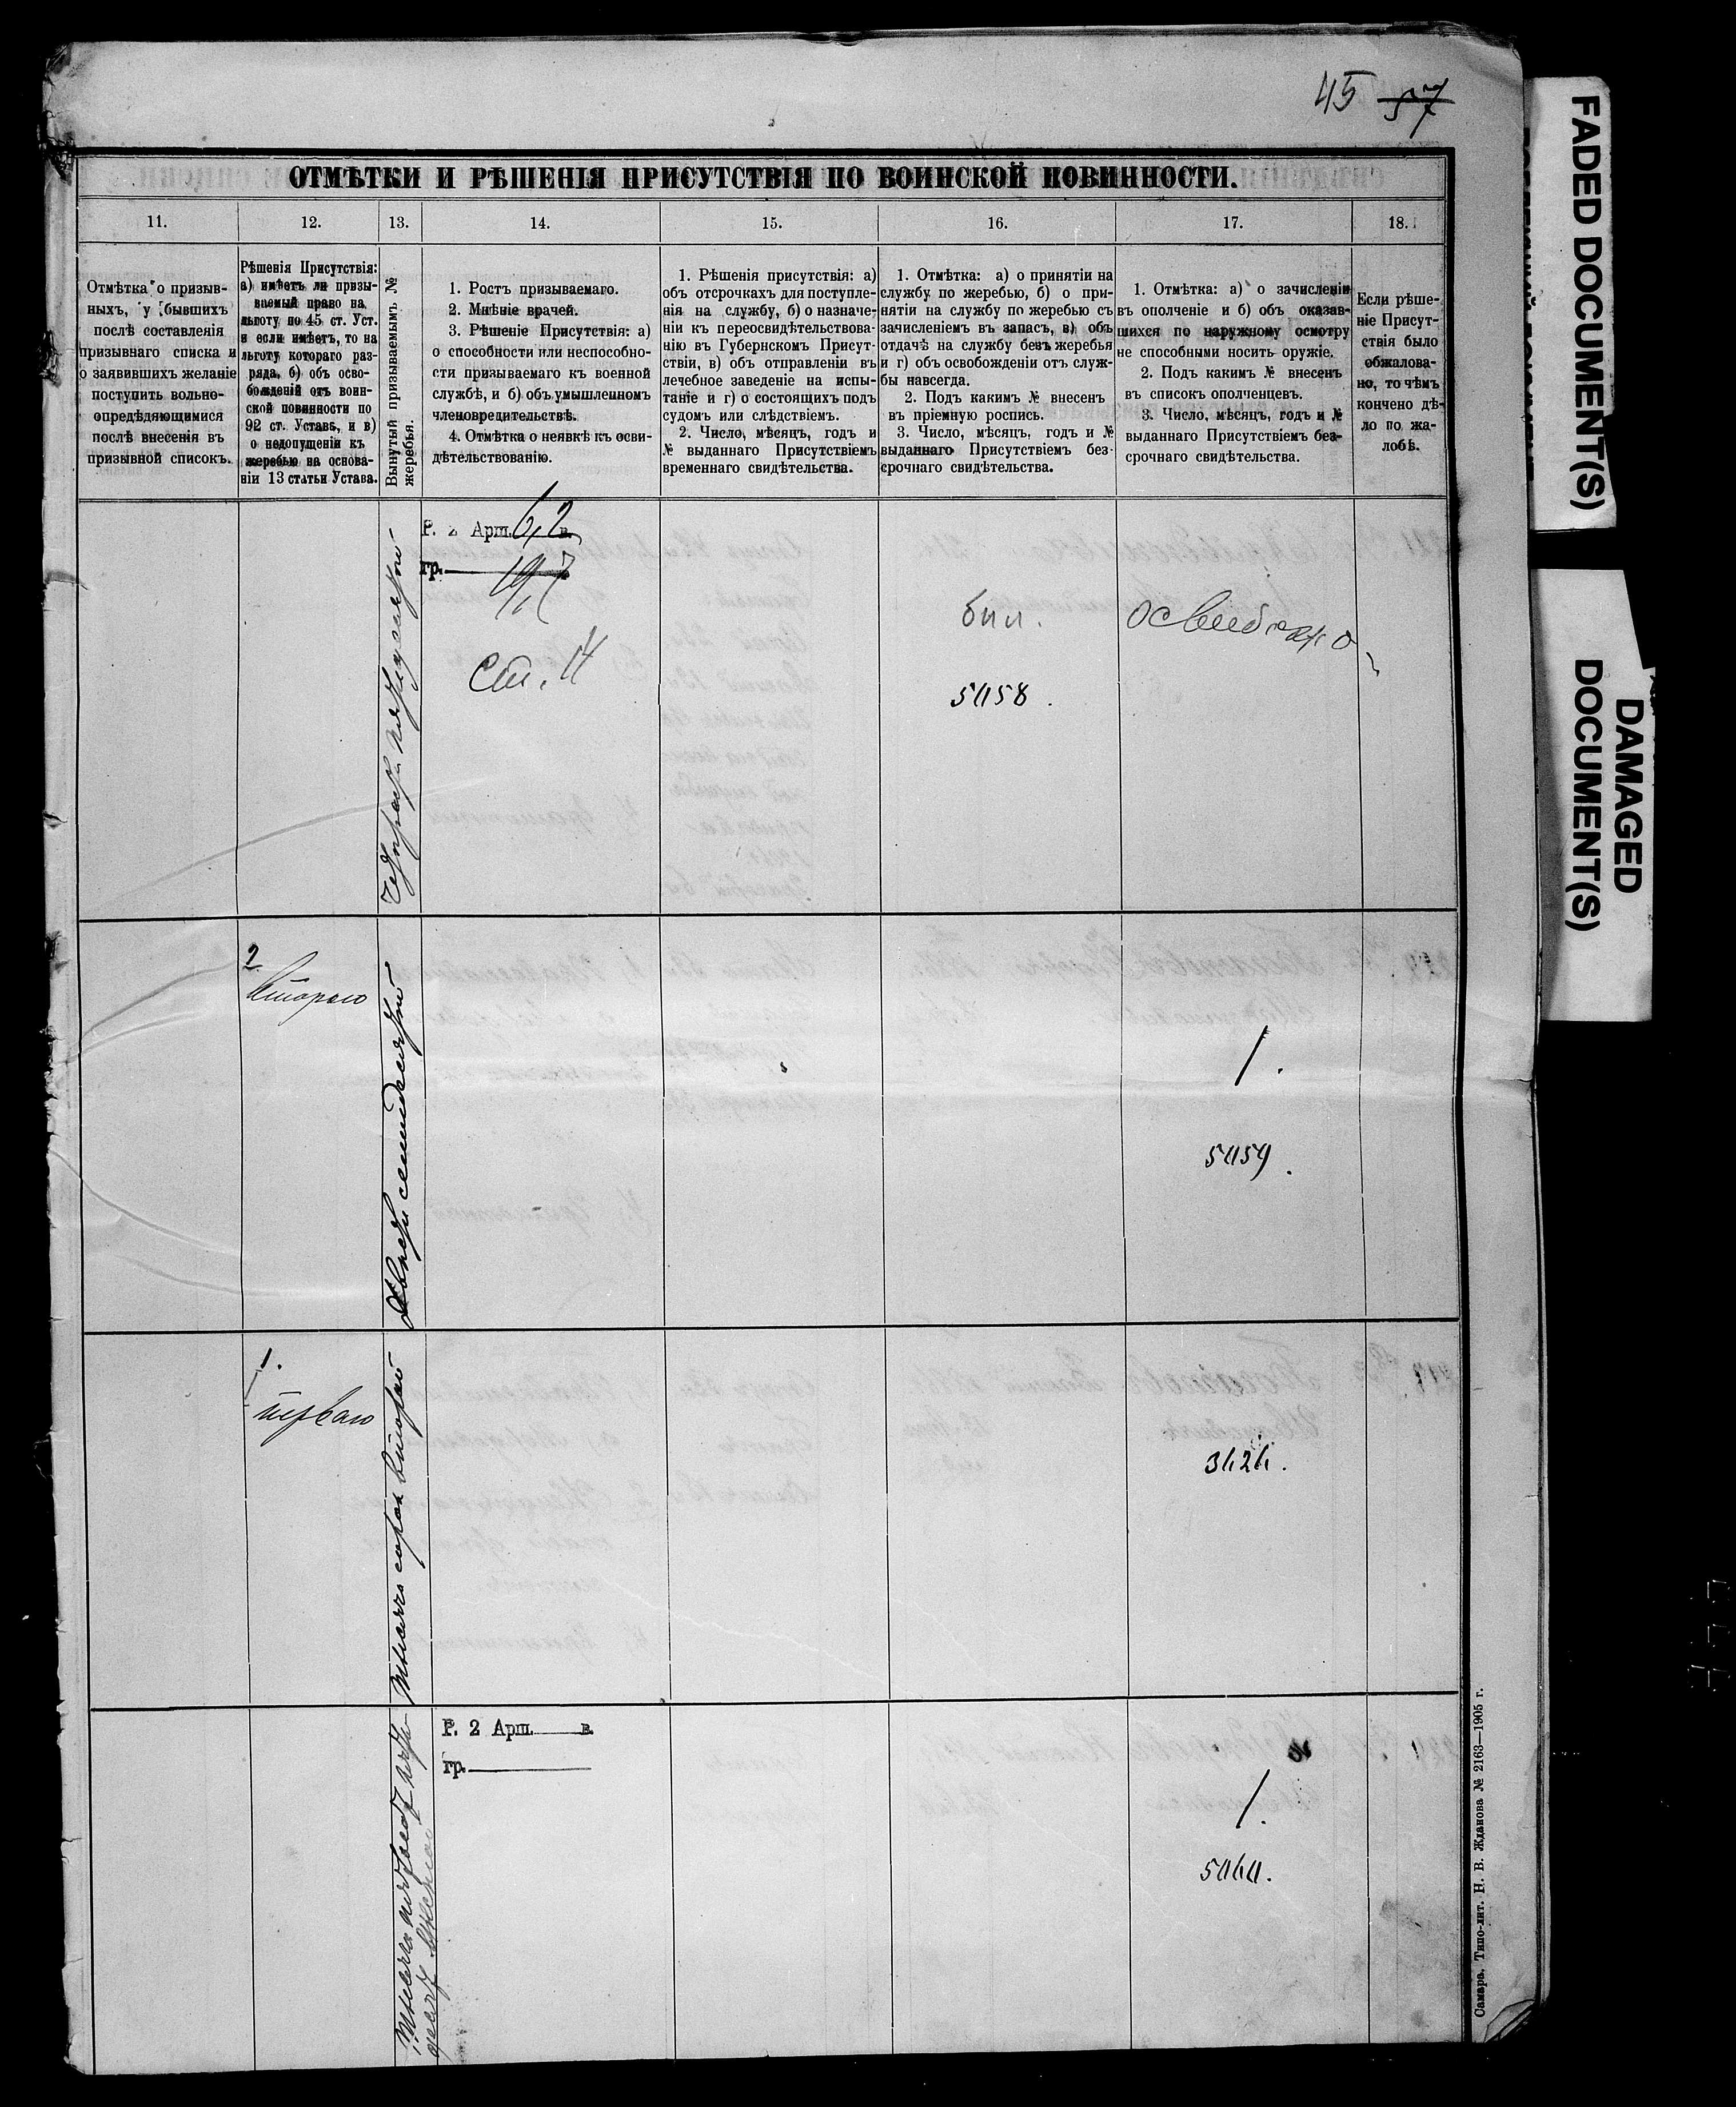 45 57
ОТМѢТКИ И РѢШЕНІЯ ПРИСУТСТВІЯ ПО ВОИНСКОЙ ПОВИННОСТИ.
11. 12. 13. 14. 15. 16. 17. 18.
Отмѣтка о призыв-
ныхъ, у бывшихъ
послѣ составленія
призывнаго списка и
о заявившихъ желаніе
поступить вольно-
опредѣляющимися
послѣ внесенія въ
призывной списокъ.
Рѣшенія Присутствія:
а) имѣетъ ли призы-
ваемый право на
льготу по 45 ст. Уст.
и если имѣетъ, то на
льготу котораго раз-
ряда, б) объ осво-
божденій отъ воин-
ской повинности по
92 ст. Устава, и в)
о недопущеніи къ
жеребью на основа-
ніи 13 статьи Устава.
Вынутый призываемымъ №
жеребья.
1. Ростъ призываемаго.
2. Мнѣніе врачей.
3. Рѣшеніе Присутствія: а)
о способности или неспособно-
сти призываемаго къ военной
службѣ, и б) объ умышленномъ
членовредительствѣ.
4. Отмѣтка о неявкѣ къ осви-
дѣтельствованію.
1. Рѣшенія присутствія: а)
объ отсрочкахъ для поступле-
нія на службу, б) о назначе-
ніи къ переосвидѣтельствова-
нію въ Губернскомъ Присут-
ствіи, в) объ отправленіи въ
лечебное заведеніе на испы-
таніе и г) о состоящихъ подъ
судомъ или слѣдствіемъ.
2. Число, мѣсяцъ, годъ и
№ выданнаго Присутствіемъ
временнаго свидѣтельства.
1. Отмѣтка: а) о принятіи на
службу по жеребью, б) о при-
нятіи на службу по жеребью съ
зачисленіемъ въ запасъ, в) объ
отдачѣ на службу безъ жеребья
и г) объ освобожденіи отъ служ-
бы навсегда.
2. Подъ какимъ № внесенъ
въ пріемную роспись.
3. Число, мѣсяцъ, годъ и №
выданнаго Присутствіемъ без-
срочнаго свидѣтельства.
1. Отмѣтка: а) о зачисленіи
въ ополченіе и б) объ оказав-
шихся по наружному осмотру
не способными носить оружіе.
2. Подъ какимъ № внесенъ
въ списокъ ополченцевъ.
3. Число, мѣсяцъ, годъ и №
выданнаго Присутствіемъ без-
срочнаго свидѣтельства.
Если рѣше-
ніе Присут-
ствія было
обжалова-
но, то чѣмъ
кончено дѣ-
ло по жа-
лобѣ.
Р. 2 Арш. 6,2 в.
гр.
5058.
2
Втораго
двѣсти семидесятый
1.
5059.
1.
перваго
тысяча сорокъ второй
3424.
Р. 2 Арш. в.
гр.
1.
5060.
Самара. Типо-лит. Н. В. Жданова № 2163—1905 г.
FADED DOCUMENT(S)
DAMAGED
DOCUMENT(S)